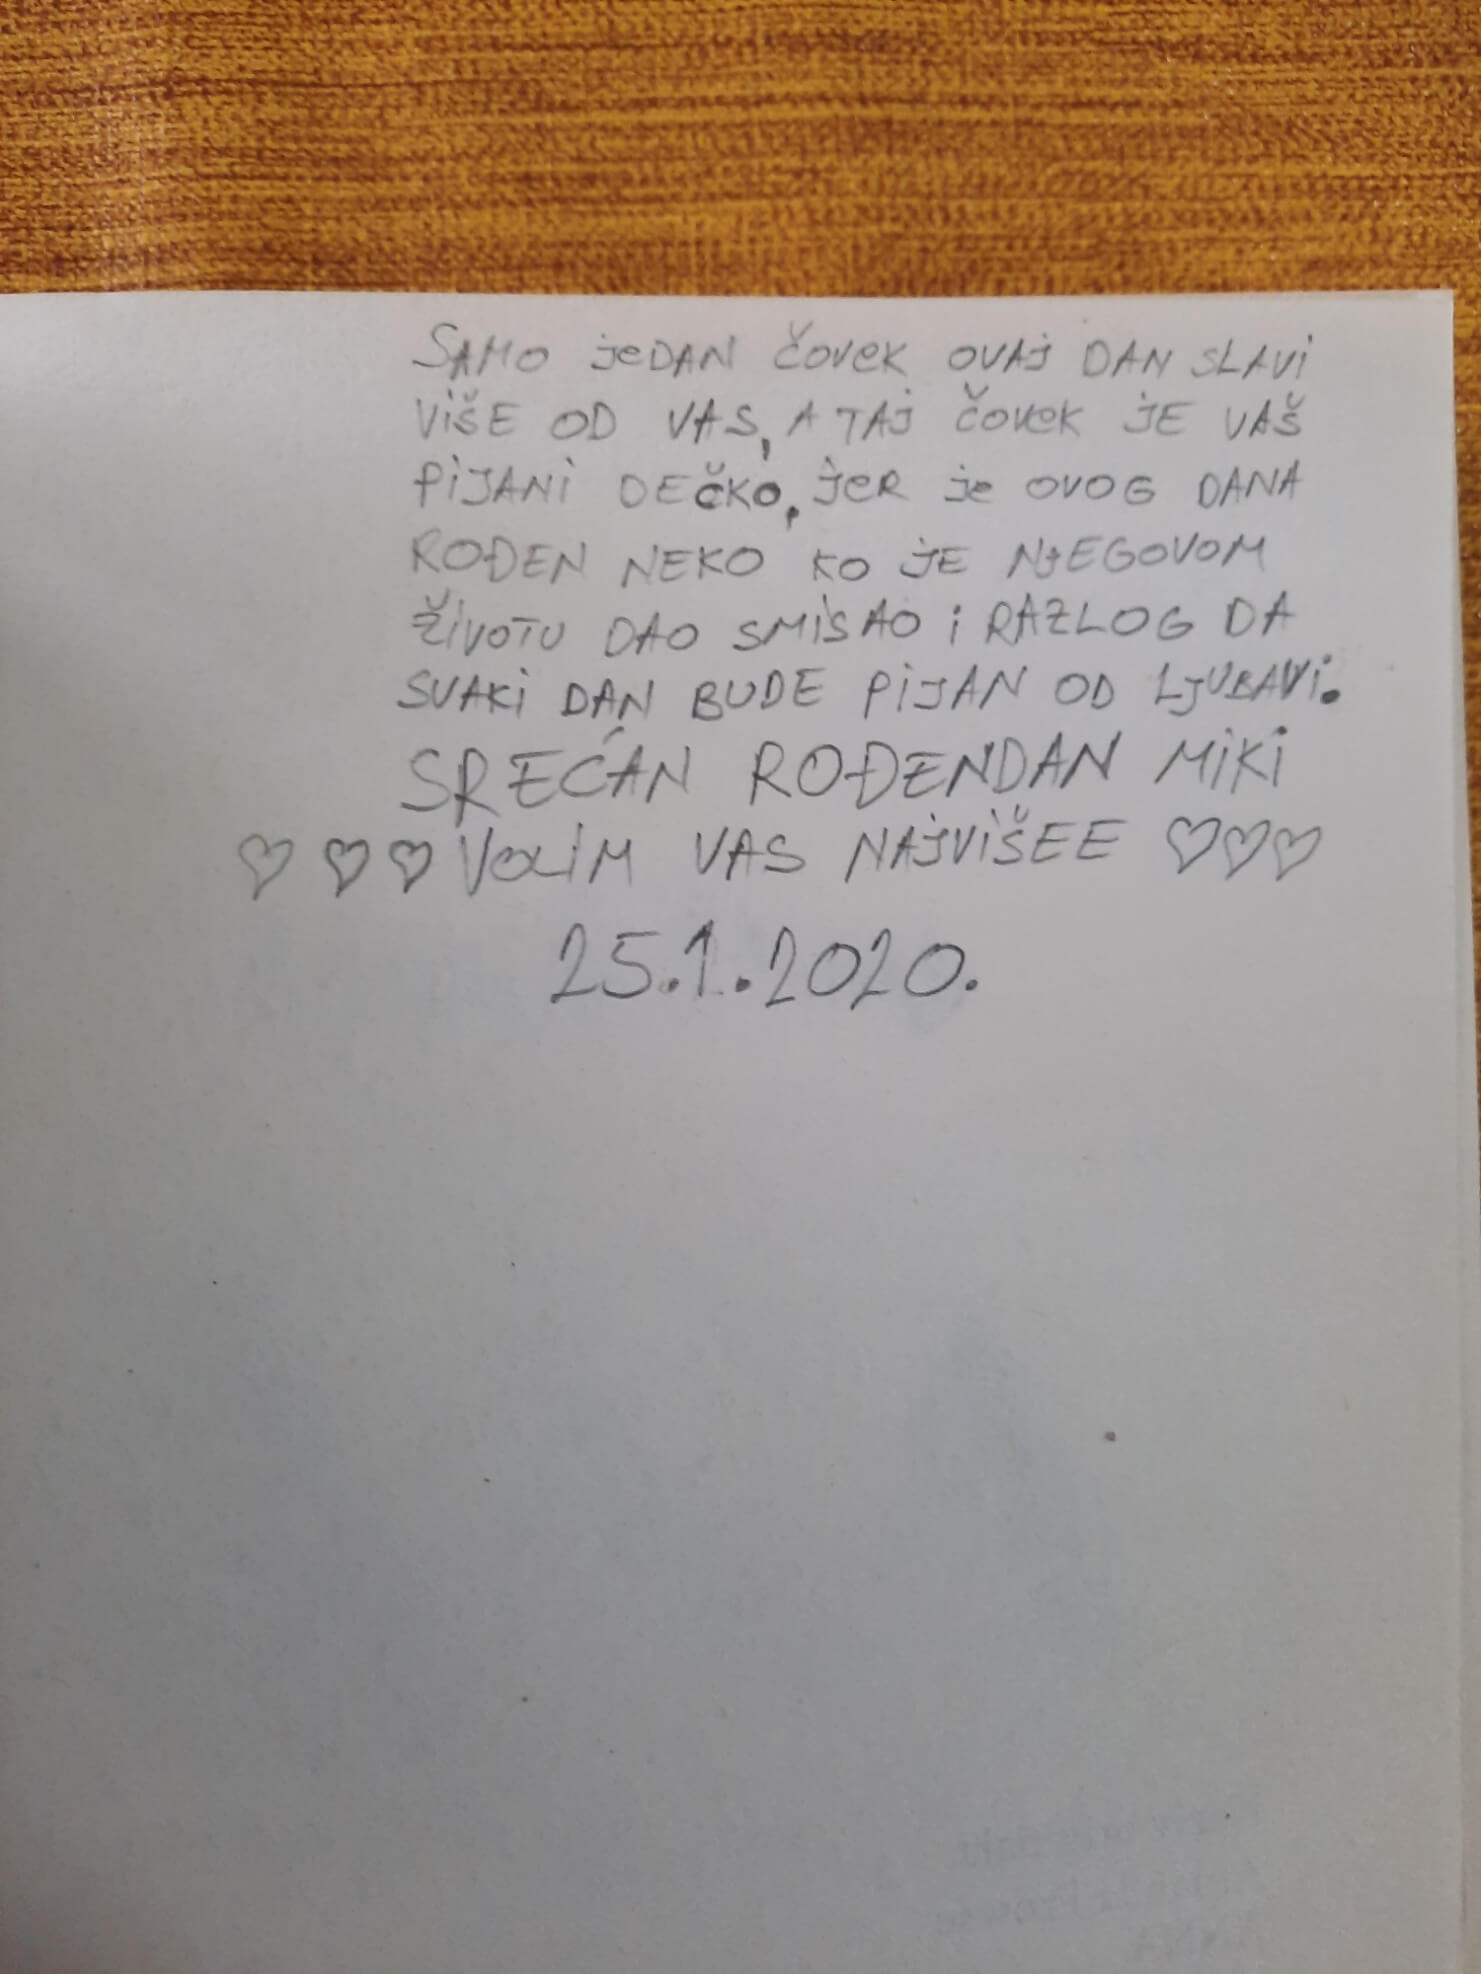 SAMO jeDAN čovek OVAJ DAN SLAVi
ViŠE OD VAS, A TAJ čovek JE VAŠ
PiJANi DEČKO, jeR je OVOG DANA
ROĐEN NEKO KO JE NJEGOVOM
ŽiVOTU DAO SMiSAO i RAZLOG DA
SVAKi DAN BUDE PiJAN OD LJUBAVi.
SREĆAN ROĐENDAN MiKi
♡ ♡ ♡ VOLiM VAS NAJViŠEE ♡♡♡
25.1.2020.